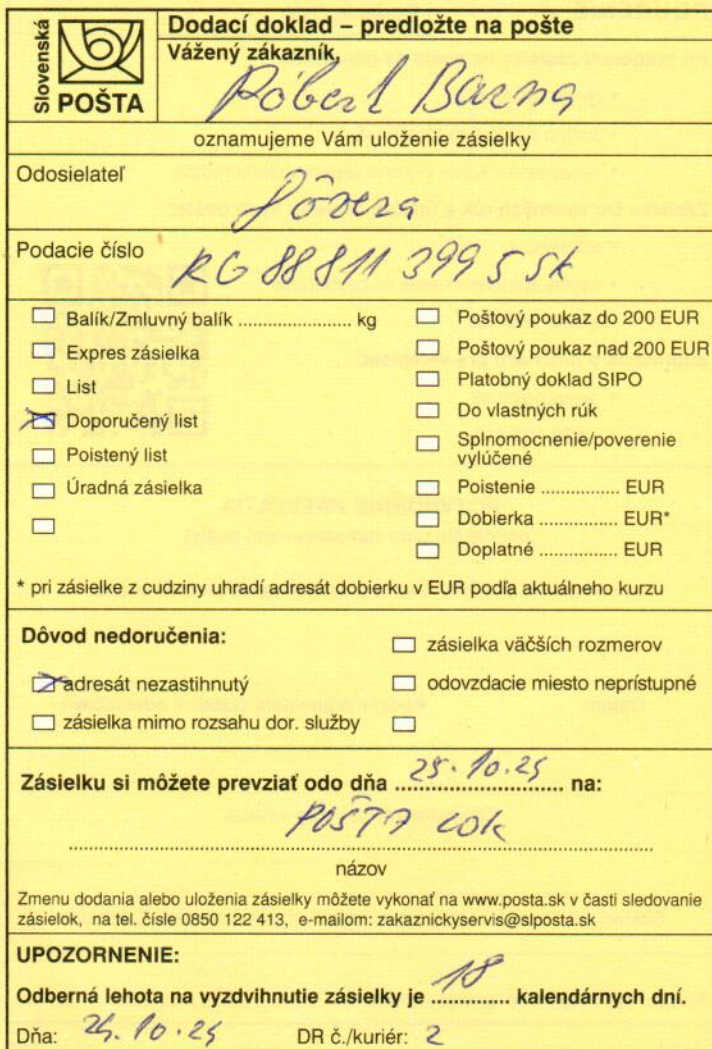 Slovenská
POŠTA
Dodací doklad – predložte na pošte
Vážený zákazník,
Róbert Barna
oznamujeme Vám uloženie zásielky
Odosielateľ
Dôvera
Podacie číslo
RG 88 811 399 5 SK
Balík/Zmluvný balík ....................... kg
Expres zásielka
List
Doporučený list
Poistený list
Úradná zásielka
Poštový poukaz do 200 EUR
Poštový poukaz nad 200 EUR
Platobný doklad SIPO
Do vlastných rúk
Splnomocnenie/poverenie
vylúčené
Poistenie ................ EUR
Dobierka ................ EUR*
Doplatné ................ EUR
* pri zásielke z cudziny uhradí adresát dobierku v EUR podľa aktuálneho kurzu
Dôvod nedoručenia:
adresát nezastihnutý
zásielka mimo rozsahu dor. služby
zásielka väčších rozmerov
odovzdacie miesto neprístupné
Zásielku si môžete prevziať odo dňa 25.10.25 na:
POŠTA
názov
Zmenu dodania alebo uloženia zásielky môžete vykonať na www.posta.sk v časti sledovanie
zásielok, na tel. čísle 0850 122 413, e-mailom: zakaznickyservis@slposta.sk
UPOZORNENIE:
Odberná lehota na vyzdvihnutie zásielky je 18 kalendárnych dní.
Dňa: 24.10.25 DR č./kuriér: 2